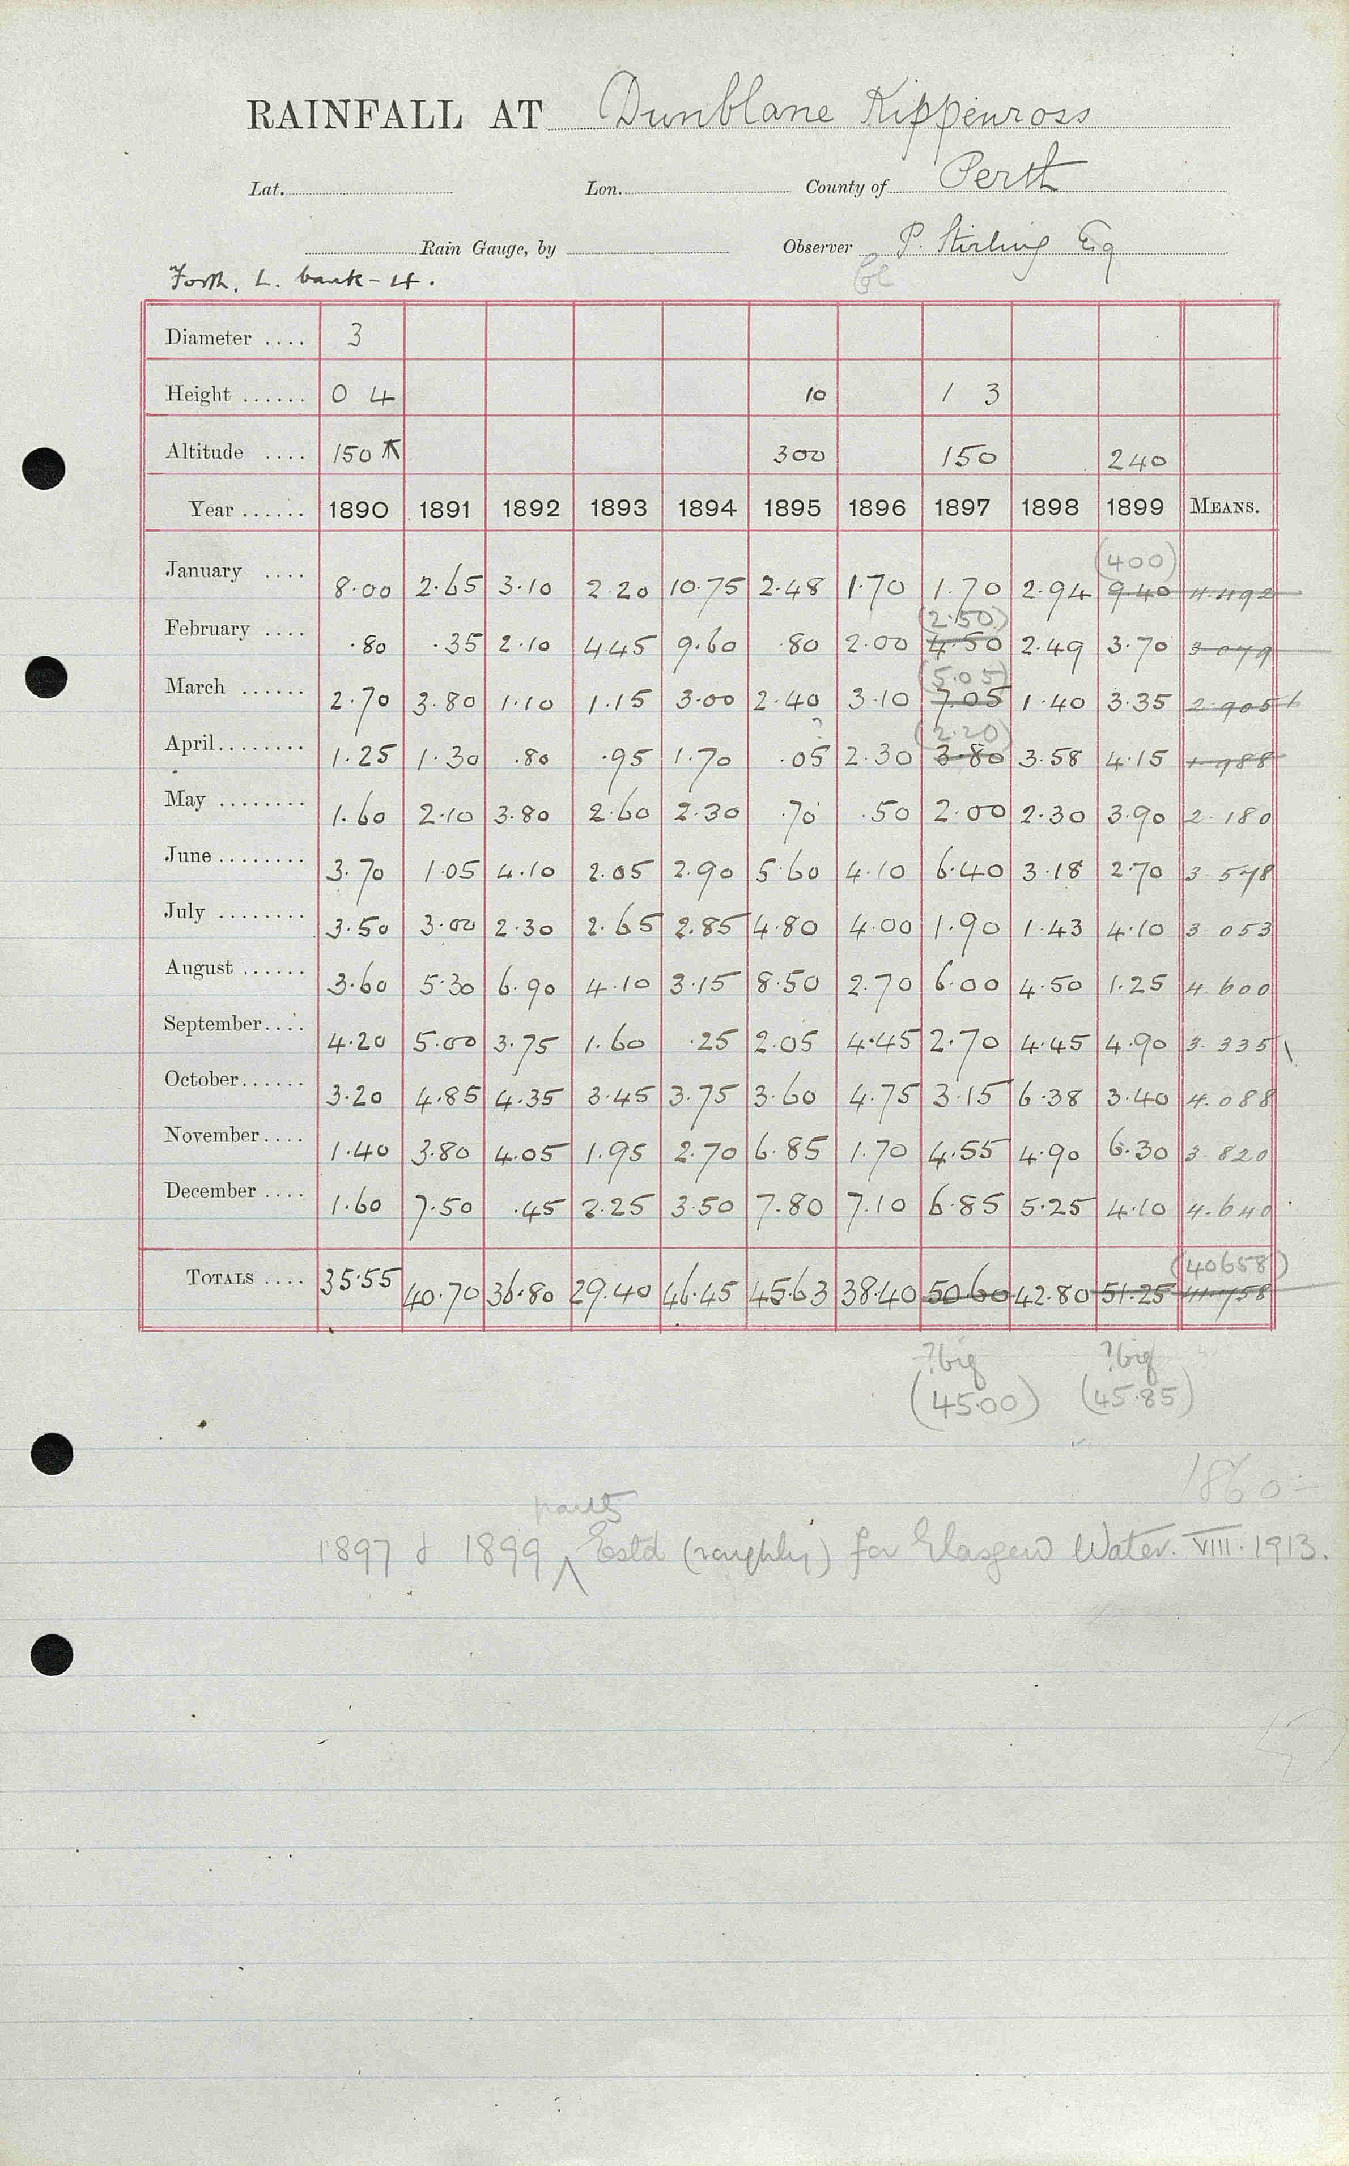 RAINFALL AT Dunblane Kippenross
Lat. Lon. County of Perth
Rain Gauge, by Observer P. Stirling Esq
Col
Forth, L. bank - 4.
Diameter .... 3
Height ...... 0 4 10 1 3
Altitude .... 150 300 150 240
Year ...... 1890 1891 1892 1893 1894 1895 1896 1897 1898 1899 MEANS.
(400)
January .... 8.00 2.65 3.10 2.20 10.75 2.48 1.70 1.70 2.94 9.40 4.492
(2.50)
February .... .80 .35 2.10 4.45 9.60 .80 2.00 4.50 2.49 3.70 3.079
(5.05)
March ...... 2.70 3.80 1.10 1.15 3.00 2.40 3.10 7.05 1.40 3.35 2.905
? (2.20)
April ........ 1.25 1.30 .80 .95 1.70 .05 2.30 3.80 3.58 4.15 1.988
May ........ 1.60 2.10 3.80 2.60 2.30 .70 .50 2.00 2.30 3.90 2.180
June ........ 3.70 1.05 4.10 2.05 2.90 5.60 4.10 6.40 3.18 2.70 3.578
July ........ 3.50 3.00 2.30 2.65 2.85 4.80 4.00 1.90 1.43 4.10 3.053
August ...... 3.60 5.30 6.90 4.10 3.15 8.50 2.70 6.00 4.50 1.25 4.600
September.... 4.20 5.00 3.75 1.60 .25 2.05 4.45 2.70 4.45 4.90 3.335
October ...... 3.20 4.85 4.35 3.45 3.75 3.60 4.75 3.15 6.38 3.40 4.088
November.... 1.40 3.80 4.05 1.95 2.70 6.85 1.70 4.55 4.90 6.30 3.820
December .... 1.60 7.50 .45 2.25 3.50 7.80 7.10 6.85 5.25 4.10 4.640
(40658)
TOTALS .... 35.55 40.70 36.80 29.40 46.45 45.63 38.40 50.60 42.80 51.25 41.758
? big ? big
(45.00) (45.85)
1860 -
parts
1897 & 1899 ^ Estd (roughly) for Glasgow Water. VIII. 1913.